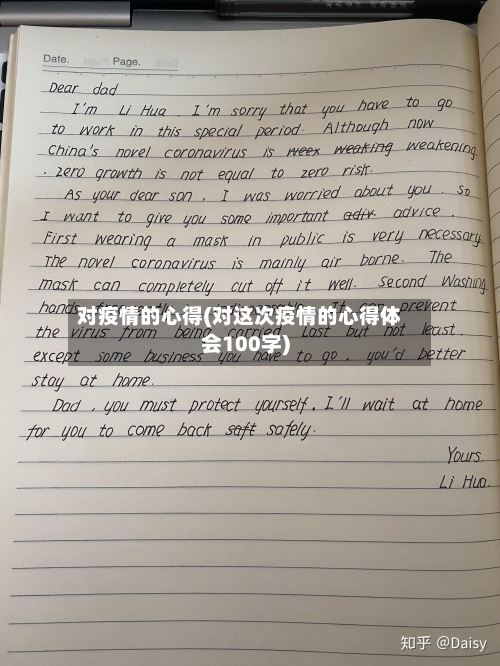 Date. Page.
Dear dad
I'm Li Hua. I'm sorry that you have to go
to work in this special period. Although now
China's novel coronavirus is weex weaking weakening
. zero growth is not equal to zero risk.
As your dear son, I was worried about you. So
I want to give you some important adiv. advice.
First wearing a mask in public is very necessary
The novel coronavirus is mainly air borne. The
mask can completely cut off it well. Second Washing
hands prevent
对疫情的心得(对这次疫情的心得体
the virus from being carried Last but not least.
会100字)
except some business you have to go, you'd better
stay at home.
Dad, you must protect yourself, I'll wait at home
for you to come back saft safely.
Yours.
Li Hua.
知乎 @Daisy